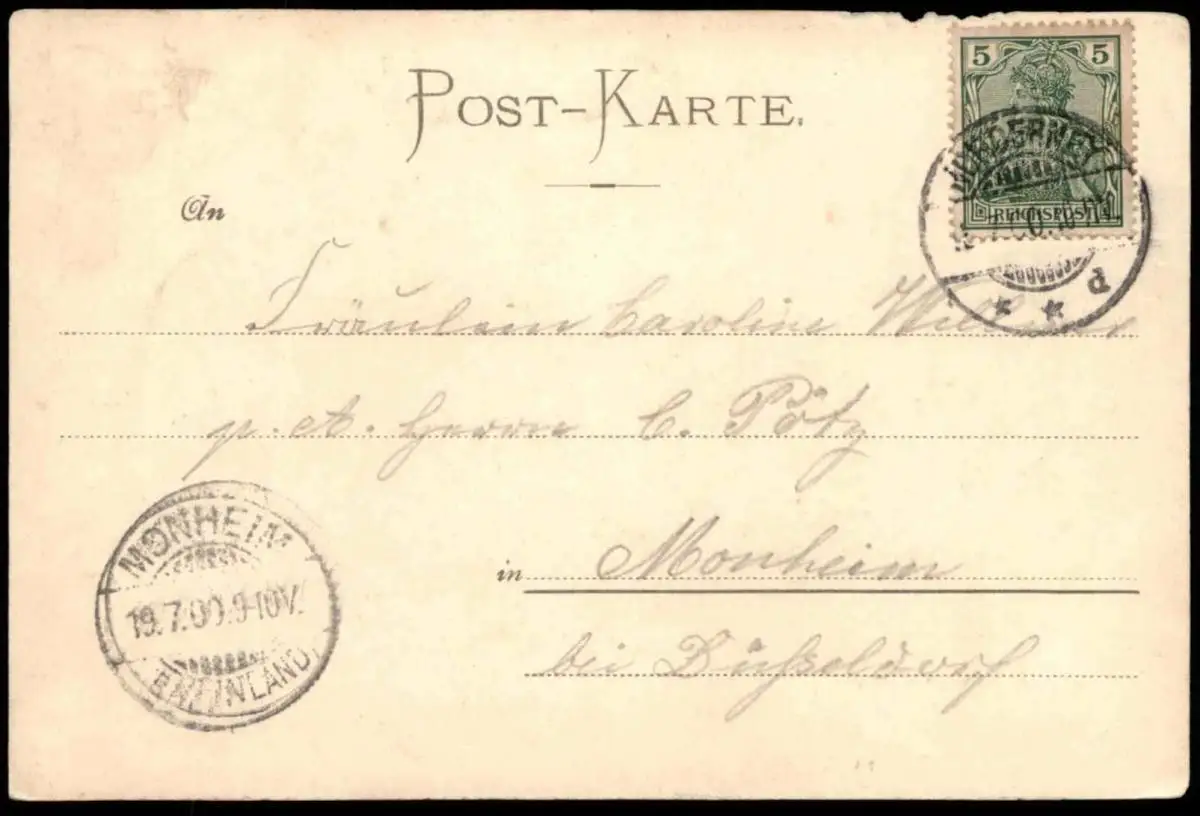 POST-KARTE.
5 5
REICHSPOST
NORDERNEY
7.00.
d
* *
An
Fräulein Caroline
p. A. Herrn C. Pötz
in Monheim
bei Düßeldorf
MONHEIM
19.7.00.9-10V.
RHEINLAND